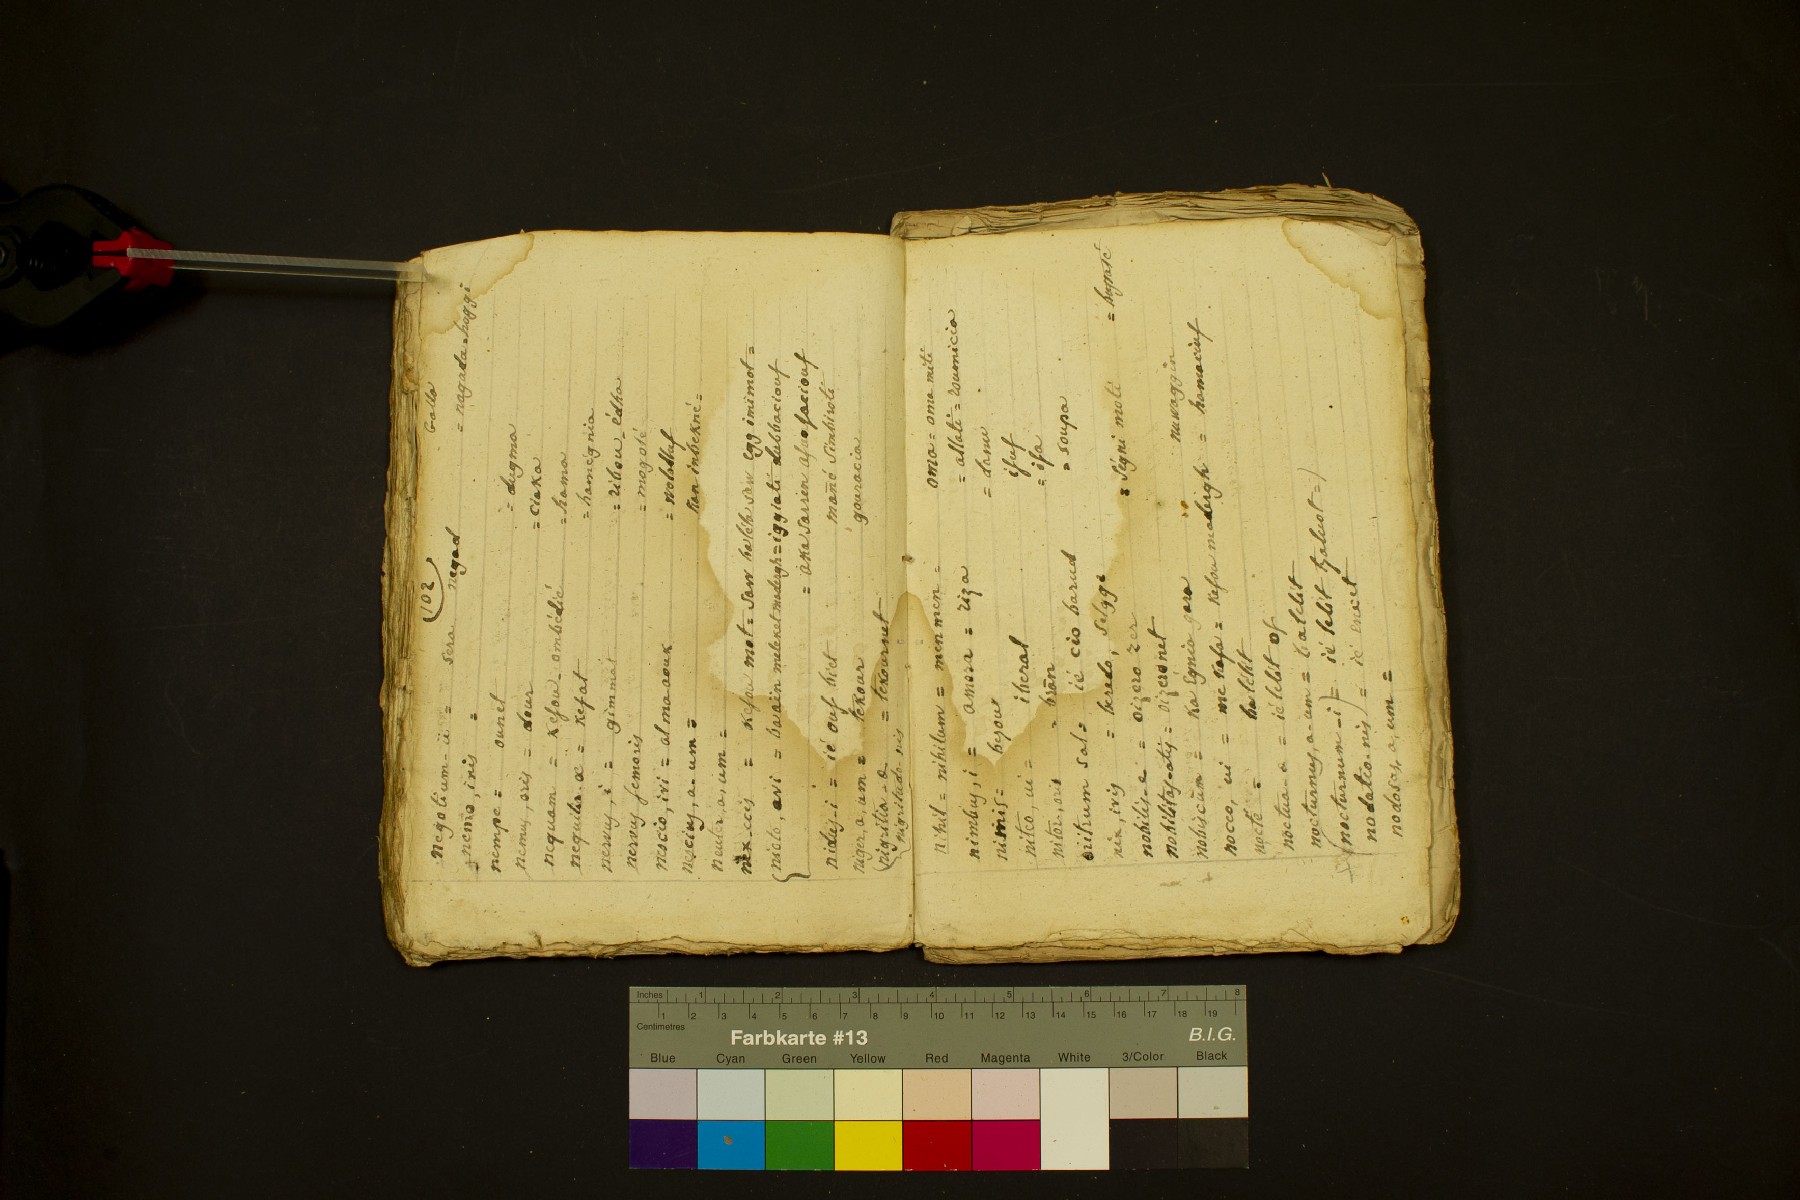 (102) Galla
negotium-ii = sera negad = nagada-hoggi
nemo, inis =
nempe = ounet = dugma
nemus, oris = dour = ciaka
nequam = kefou-ombédié = hama
nequitia-æ = kefat = hamégnia
nervus, i = gimmat = ribou-édha
nervus femoris = mogolé
nescio, ivi = almaaouk = wolaluf
nescius, a-um = kan inbekné =
neuter, a, um =
nex-ecis = kefou mot = saw baléla saw egginimot =
nicto, avi = baain meleket maderghe = iggiati dubbaciouf
= aka sarien afuofaciouf
nidus-i = ié ouf biet mané simbiroti
niger, a, um = tekour gouracia
nigritia-æ = tekournet
nigritudo-nis
nihil = nihilum = menmen = oma = oma miti
nimbus, i = amora = riza = allati = roumicia
nimis = bezour = danu
niteo, ui = iberal ifuf
nitor, oris = brân = ifa
nitrum sal = ié cio barud = soupa
nix, ivis = beredo, seigge = signi moti = baguié
nobilis-e = oizero zer
nobilitas-atis = oizeronet
nobiscum = ka egnia gara nuwaggin
noceo, ui = me kefa = kefou maderghe = hamaciuf
nocte = ba lelit
noctua-æ = ié lelit of
nocturnus, a-um = ba lelit
(nocturnum-i) = ié lelit tzaluot =)
nodatio-nis) = ié encet
nodosus, a, um =
Inches 1 2 3 4 5 6 7 8
Centimetres 1 2 3 4 5 6 7 8 9 10 11 12 13 14 15 16 17 18 19
Farbkarte #13 B.I.G.
Blue Cyan Green Yellow Red Magenta White 3/Color Black